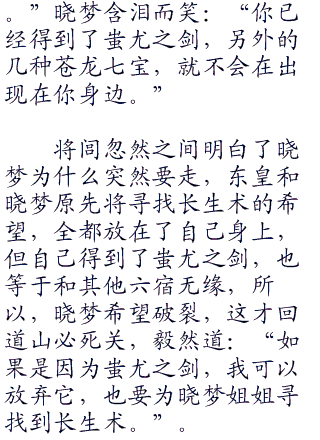 。”晓梦含泪而笑：“你已
经得到了蚩尤之剑，另外的
几种苍龙七宝，就不会在出
现在你身边。”
将闾忽然之间明白了晓
梦为什么突然要走，东皇和
晓梦原先将寻找长生术的希
望，全都放在了自己身上，
但自己得到了蚩尤之剑，也
等于和其他六宿无缘，所
以，晓梦希望破裂，这才回
道山必死关，毅然道：“如
果是因为蚩尤之剑，我可以
放弃它，也要为晓梦姐姐寻
找到长生术。”。